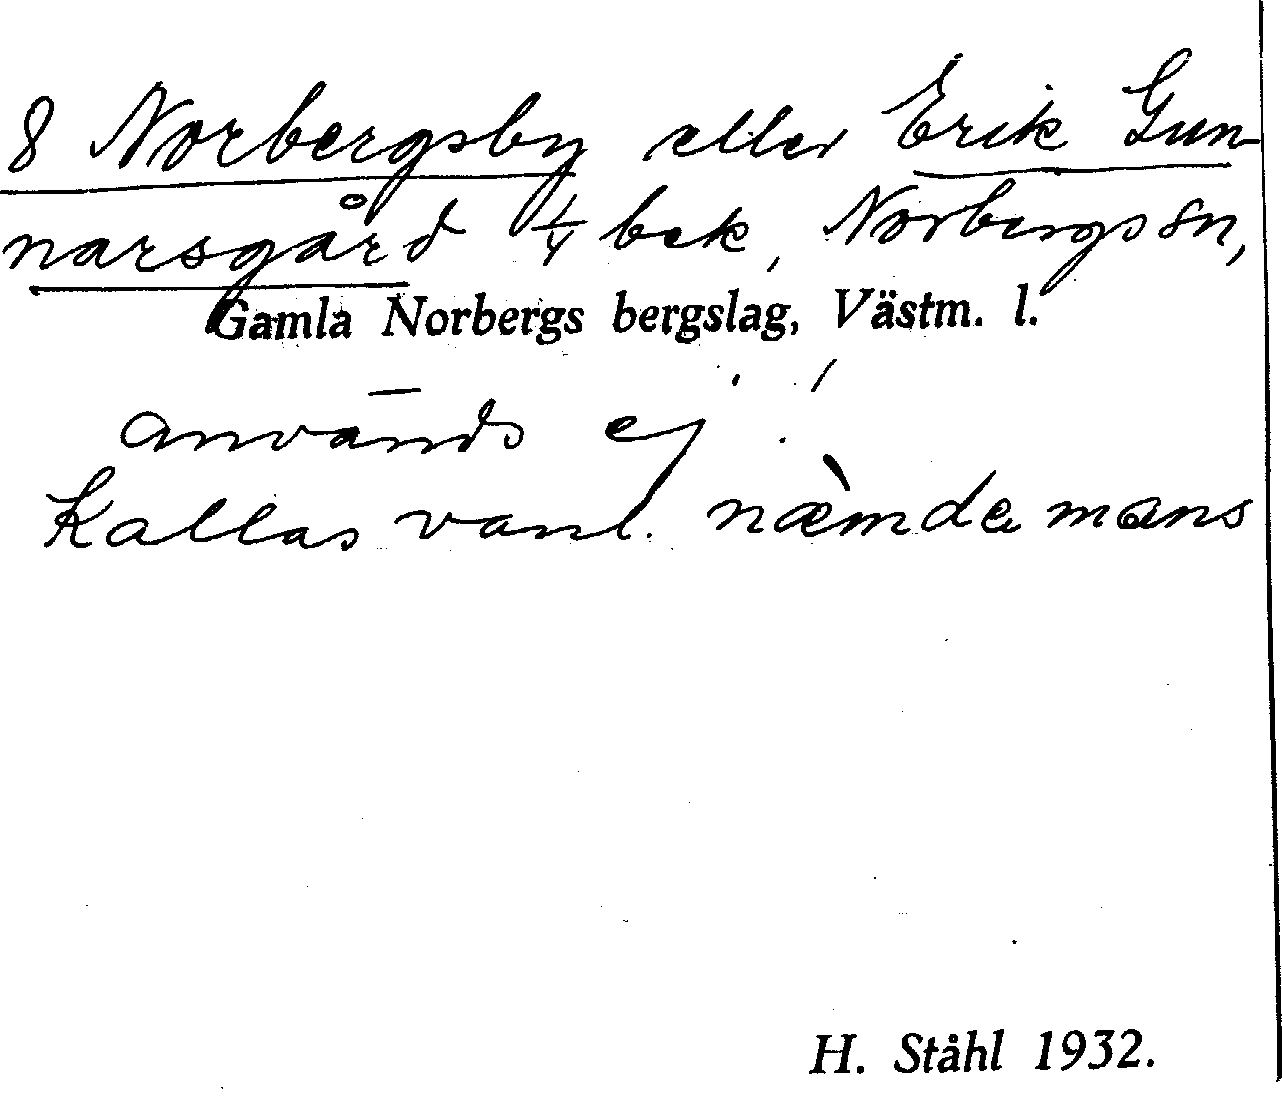 8 Norbergsby eller Erik Gun-
narsgård 1/4 bek, Norbergs sn,
Gamla Norbergs bergslag, Västm. l.
används ej!
Kallas vanl. næ̀mdemans
H. Ståhl 1932.